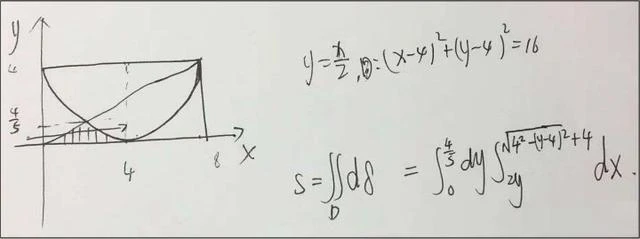 y
4
4/5
4
8
x
y = x/2, ⊙: (x-4)² + (y-4)² = 16
S = ∬_D dδ = ∫_0^{4/5} dy ∫_{2y}^{√(4²-(y-4)²)+4} dx.